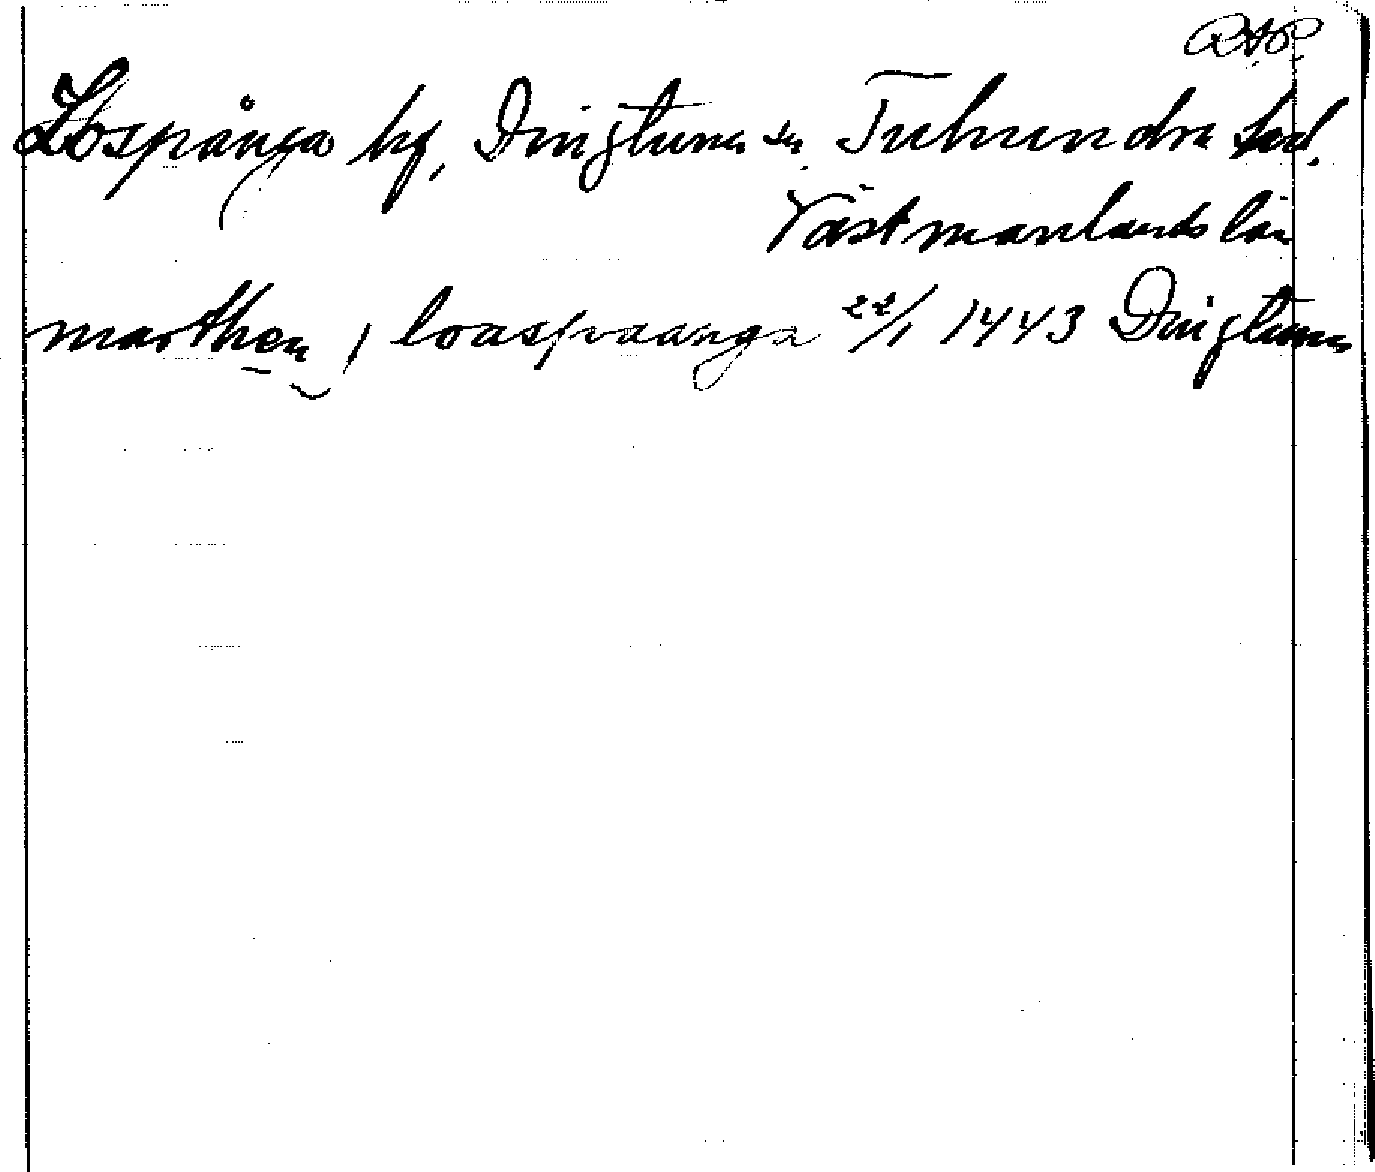 RAP.
Lospånga by, Dingtuna sn. Tuhundra hd.
Västmanlands län
marthen j loaspaanga 22/1 1443 Dingtuna